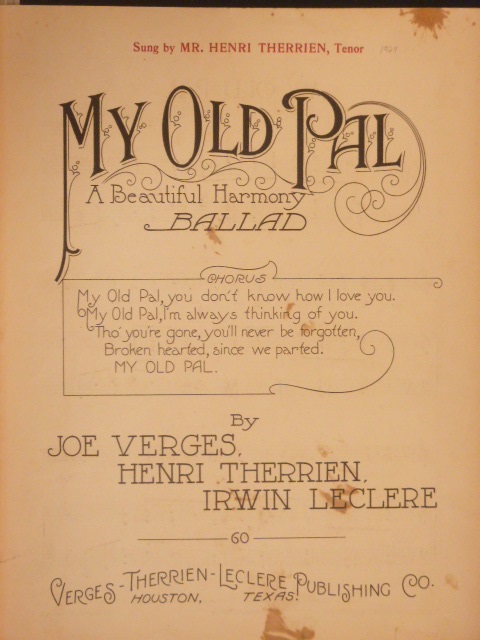 Sung by MR. HENRI THERRIEN, Tenor
MY OLD PAL
A Beautiful Harmony
BALLAD
CHORUS
My Old Pal, you don't know how I love you.
My Old Pal, I'm always thinking of you.
Tho' you're gone, you'll never be forgotten,
Broken hearted, since we parted.
MY OLD PAL.
By
JOE VERGES,
HENRI THERRIEN,
IRWIN LECLERE
60
VERGES-THERRIEN-LECLERE PUBLISHING CO.
HOUSTON, TEXAS.